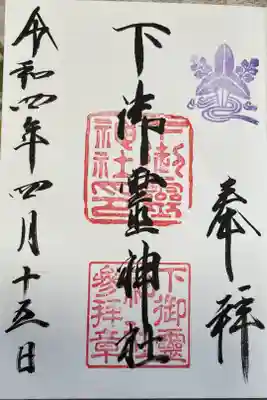 奉拝
下御霊神社
下御霊神社印
下御霊神社参拝章
令和四年四月十五日